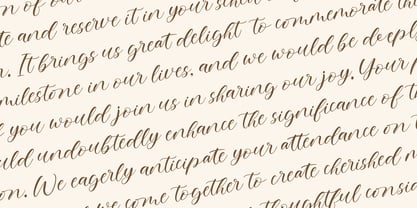 on of our
te and reserve it in your sched
n. It brings us great delight to commemorate th
milestone in our lives, and we would be deepl
f you would join us in sharing our joy. Your p
uld undoubtedly enhance the significance of t
on. We eagerly anticipate your attendance on t
we come together to create cherished m
thoughtful consid